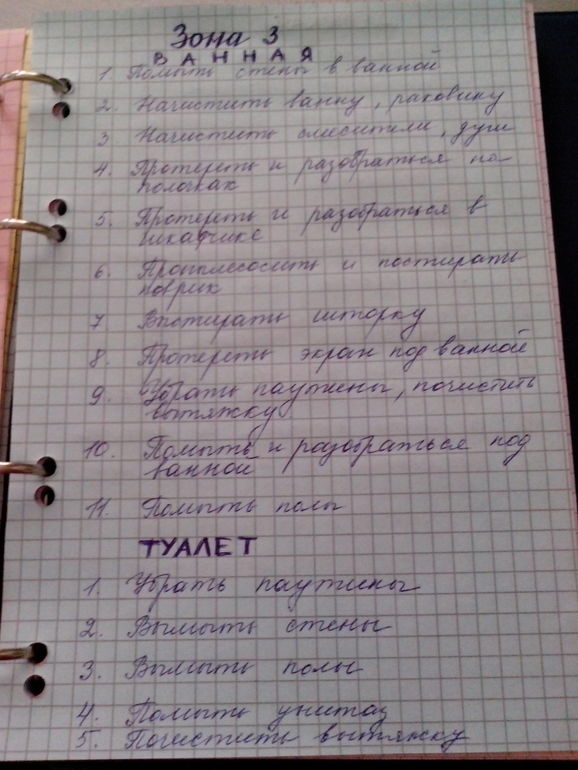 Зона 3
ВАННАЯ
1. Помыть стены в ванной
2. Начистить ванну, раковину
3 Начистить смесители, душ
4. Протереть и разобраться на
полочках
5. Протереть и разобраться в
шкафчике
6. Пропылесосить и постирать
коврик
7. Выстирать шторку
8. Протереть экран под ванной
9. Убрать паутины, почистить
вытяжку
10. Помыть и разобраться под
ванной
11. Помыть полы
ТУАЛЕТ
1. Убрать паутины
2. Вымыть стены
3. Вымыть полы
4. Помыть унитаз
5. Почистить вытяжку